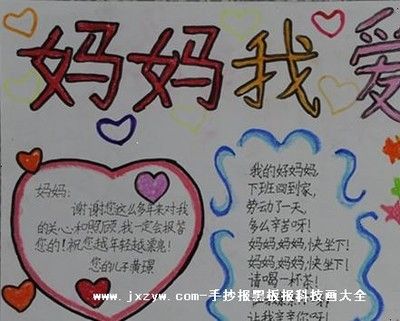 妈妈我爱
妈妈:
谢谢您这么多年来对我
的关心和照顾,我一定会报答
您的!祝您越年轻越漂亮!
您的儿子黄璟
我的好妈妈,
下班回到家,
劳动了一天,
多么辛苦呀!
妈妈,妈妈,快坐下!
妈妈,妈妈,快坐下!
请喝一杯茶!
让我亲亲你吧!
www.jxzyw.com-手抄报黑板报科技画大全